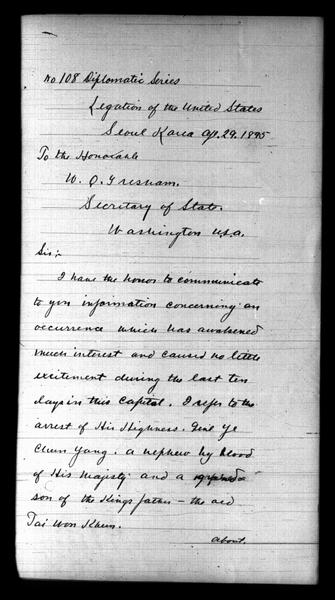 No 108 Diplomatic Series
Legation of the United States
Seoul Korea Ap. 29. 1895
To the Honorable
W. Q. Gresham.
Secretary of State.
Washington U.S.A.
Sir:-
I have the honor to communicate
to you information concerning an
occurrence which has awakened
much interest and caused no little
excitement during the last ten
days in this Capital. I refer to the
arrest of His Highness. Genl Ye
Chun Yang. a nephew by blood
of His Majesty and a grand
son of the Kings father – the old
Tai Won Khun.
About.